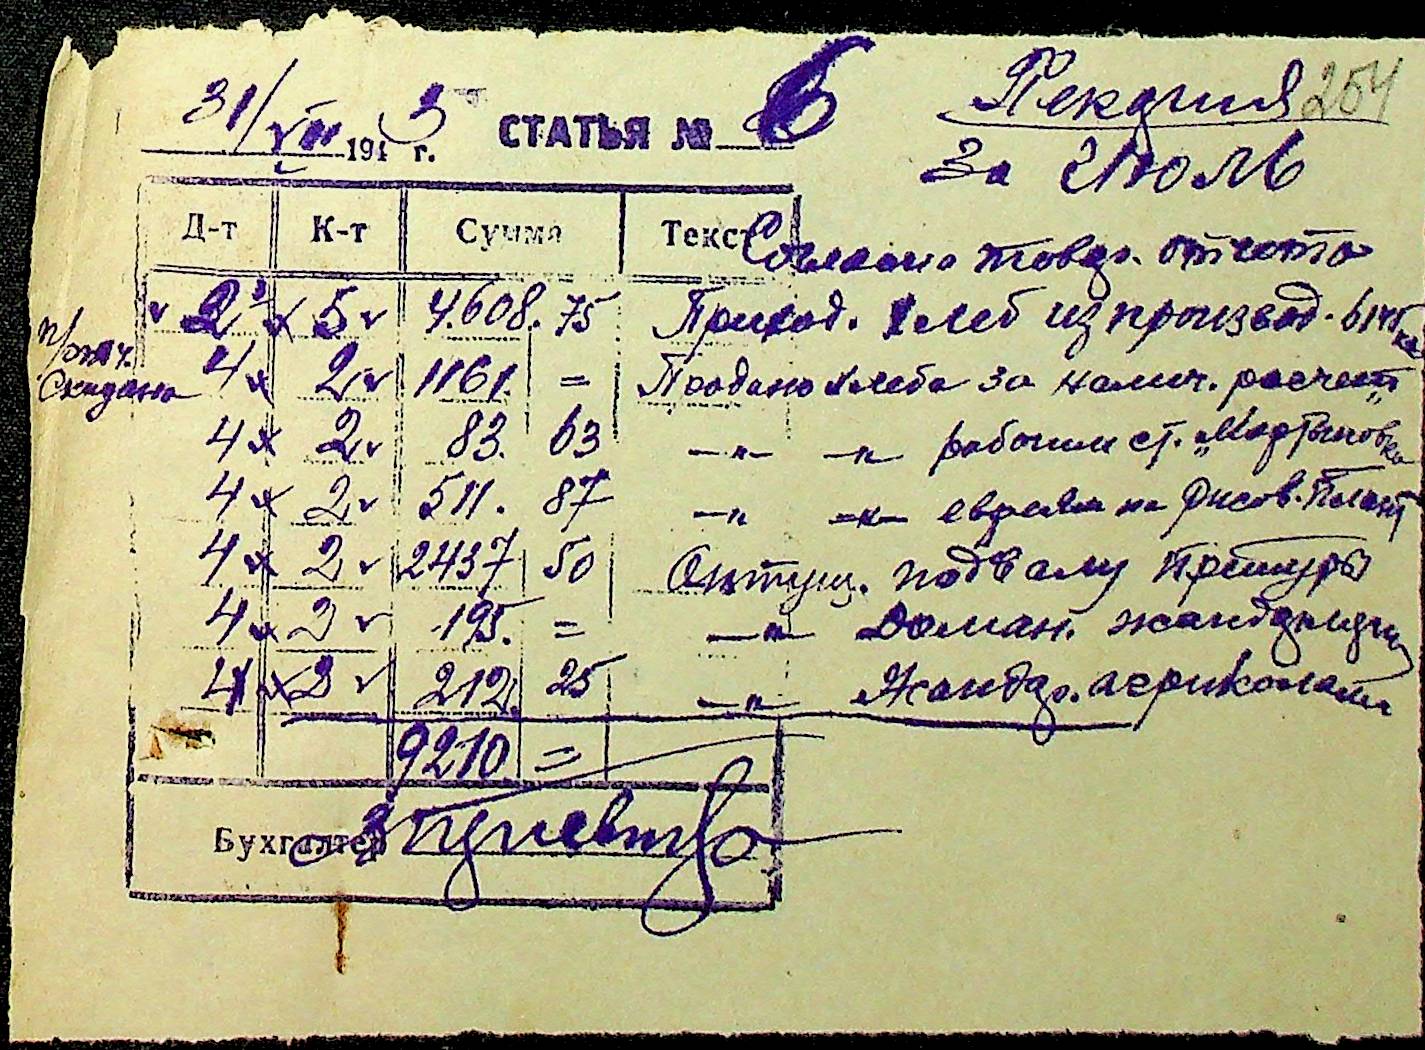 Пекарня 254
за Июль
31/VII 1943 г. СТАТЬЯ № 6
Д-т К-т Сумма Текст
Согласно товар. отчета
2 5 4.608.75 Приход. хлеб из производ.
п/отч.
Скидано 4 2 1161. = Продано хлеба за налич. расчет
4 2 83. 63 —"— —"— рабочим ст. „Мартыновка
4 2 511. 87 —"— —"— евреям на рисов. Плант
4 2 2437 50 Отпущ. подвалу Претуры
4 2 195. = —"— жандармерии
4 2 212. 25 —"— Жандар.
9210 =
Бухгалтер